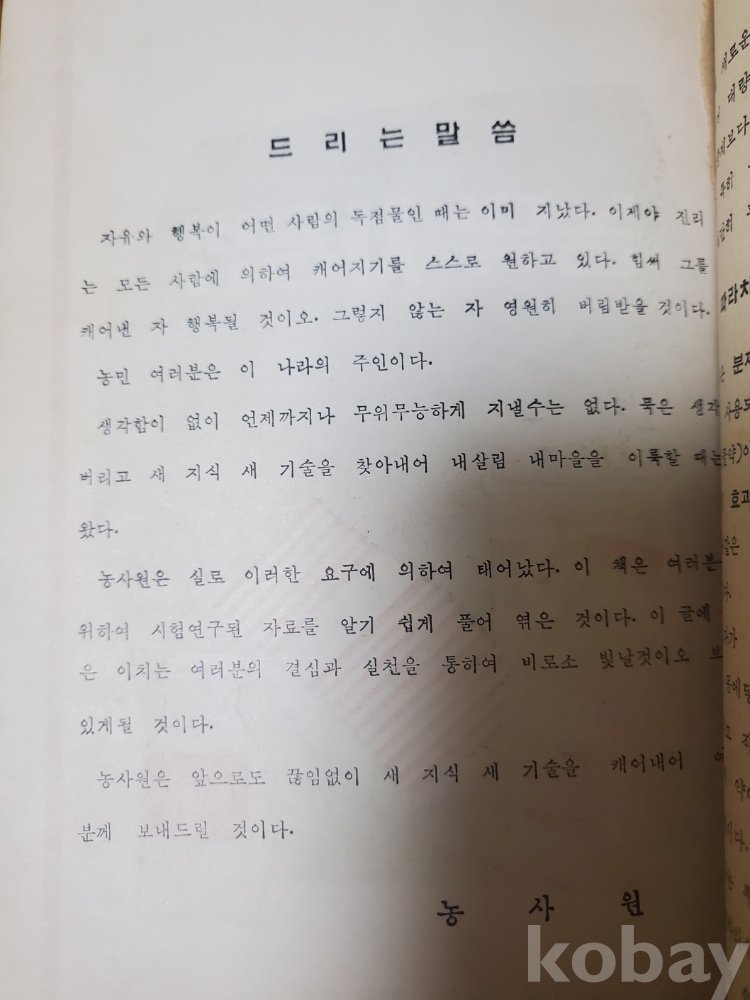 드 리 는 말 씀
자유와 행복이 어떤 사람의 독점물인 때는 이미 지났다. 이제야 진리
는 모든 사람에 의하여 캐어지기를 스스로 원하고 있다. 힘써 그를
캐어낸 자 행복될 것이오. 그렇지 않는 자 영원히 버림받을 것이다.
농민 여러분은 이 나라의 주인이다.
생각함이 없이 언제까지나 무위무능하게 지낼수는 없다. 묵은 생각
버리고 새 지식 새 기술을 찾아내어 내살림 내마을을 이룩할 때는
왔다.
농사원은 실로 이러한 요구에 의하여 태어났다. 이 책은 여러분
위하여 시험연구된 자료를 알기 쉽게 풀어 엮은 것이다. 이 글에
은 이치는 여러분의 결심과 실천을 통하여 비로소 빛날것이오 보
있게될 것이다.
농사원은 앞으로도 끊임없이 새 지식 새 기술을 캐어내어 여
분께 보내드릴 것이다.
농 사 원
새로운
대량
보다
특히
파라치
분자
사용되
효과
kobay